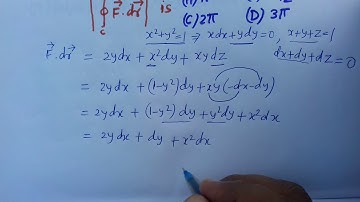 |∮_C F⃗.dr⃗| is
(C) 2π (D) 3π
x²+y²=1 ⇒ xdx+ydy=0, x+y+z=1
dx+dy+dz=0
F⃗.dr⃗ = 2ydx + x²dy + xydz
= 2ydx + (1-y²)dy + xy(-dx-dy)
= 2ydx + (1-y²)dy + y²dy + x²dx
= 2ydx + dy + x²dx